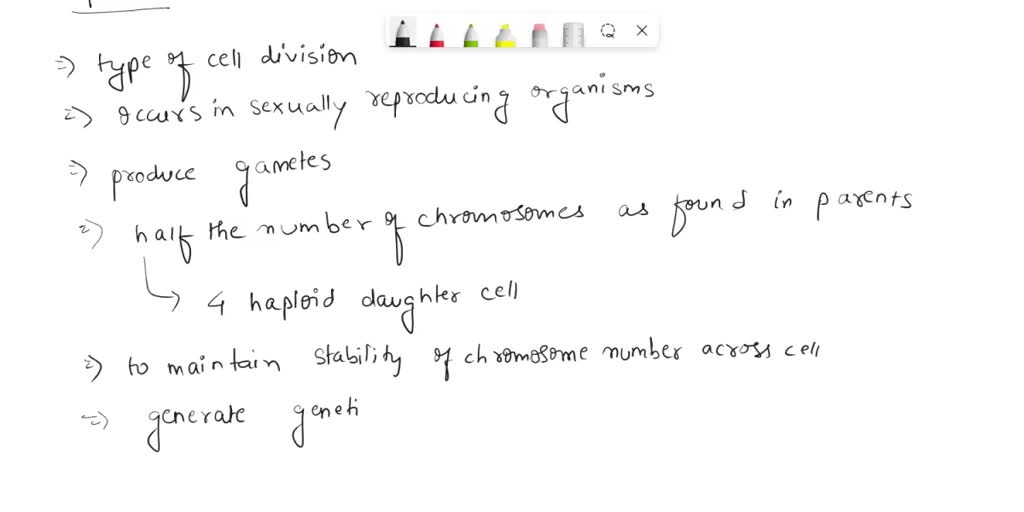 => type of cell division
=> occurs in sexually reproducing organisms
=> produce gametes
=> half the number of chromosomes as found in parents
↳ 4 haploid daughter cell
=> to maintain stability of chromosome number across cell
=> generate geneti